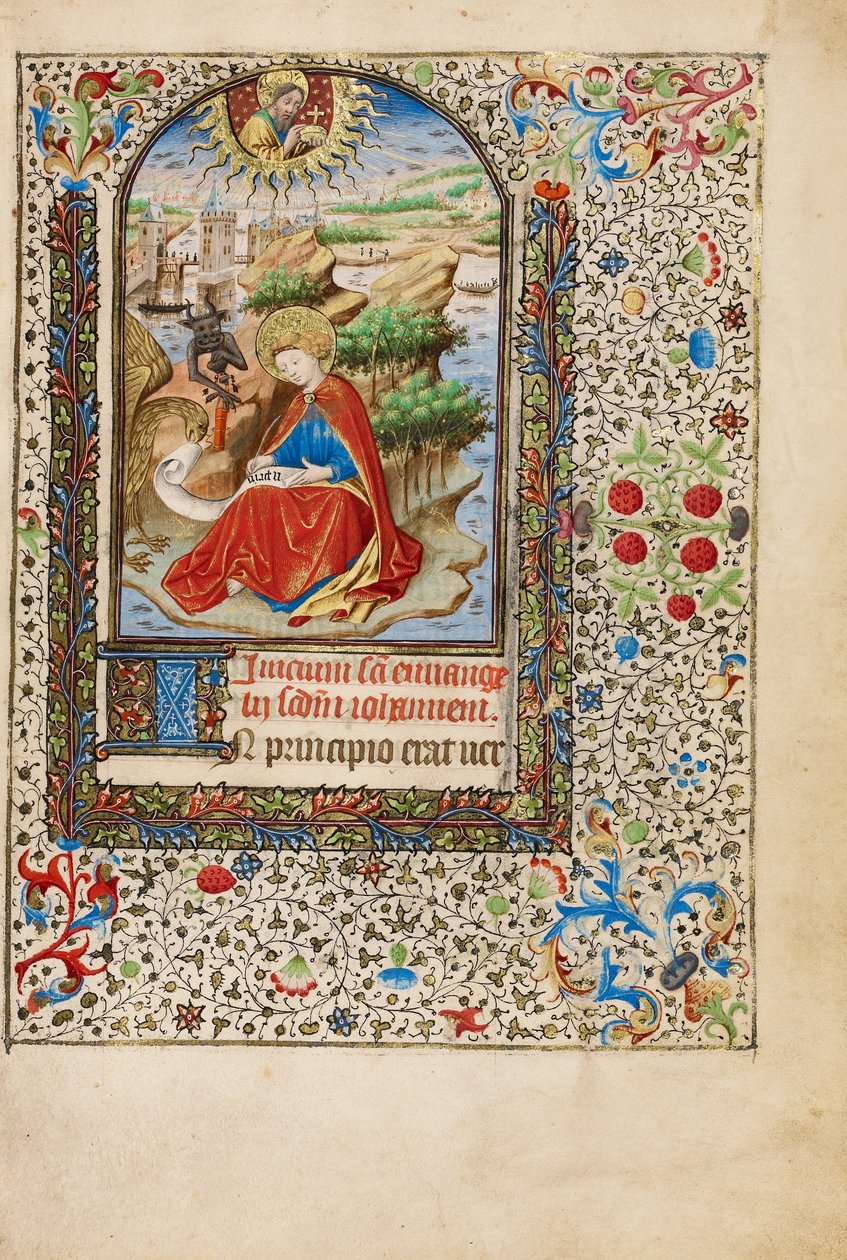 Inicium sc̄i euuange
lij scd̄m iohannem.
IN principio erat uer